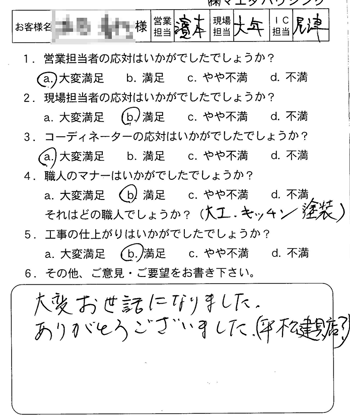 ㈱マエダハウジング
お客様名 様 営業担当 濱本 現場担当 大年 IC担当 尾津
1．営業担当者の応対はいかがでしたでしょうか？
a. 大変満足 b. 満足 c. やや不満 d. 不満
2．現場担当者の応対はいかがでしたでしょうか？
a. 大変満足 b. 満足 c. やや不満 d. 不満
3．コーディネーターの応対はいかがでしたでしょうか？
a. 大変満足 b. 満足 c. やや不満 d. 不満
4．職人のマナーはいかがでしたでしょうか？
a. 大変満足 b. 満足 c. やや不満 d. 不満
それはどの職人でしょうか？（大工・キッチン 塗装）
5．工事の仕上がりはいかがでしたでしょうか？
a. 大変満足 b. 満足 c. やや不満 d. 不満
6．その他、ご意見・ご要望をお書き下さい。
大変お世話になりました。
ありがとうございました。(平松建具店?)